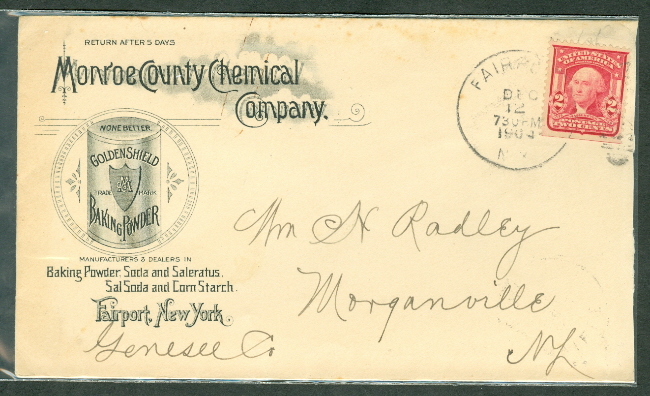 RETURN AFTER 5 DAYS
Monroe County Chemical
Company.
NONE BETTER.
GOLDEN SHIELD
TRADE MARK
BAKING POWDER
MANUFACTURERS & DEALERS IN
Baking Powder, Soda and Saleratus.
Sal Soda and Corn Starch.
Fairport, New York.
DEC
12
730PM
1904
N.Y.
UNITED STATES
OF AMERICA
2 2
TWO CENTS
Wm H Radley
Morganville
Genesee Co
NY